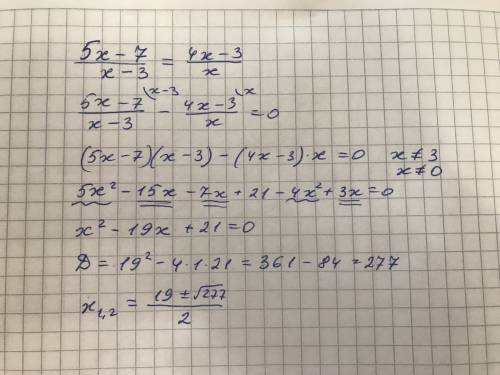 (5x-7)/(x-3) = (4x-3)/x
(5x-7)/(x-3) \x-3 - (4x-3)/x \x = 0
(5x-7)(x-3) - (4x-3)·x = 0 x≠3
x≠0
5x² - 15x - 7x + 21 - 4x² + 3x = 0
x² - 19x + 21 = 0
D = 19² - 4·1·21 = 361 - 84 = 277
x₁,₂ = (19 ± √277)/2